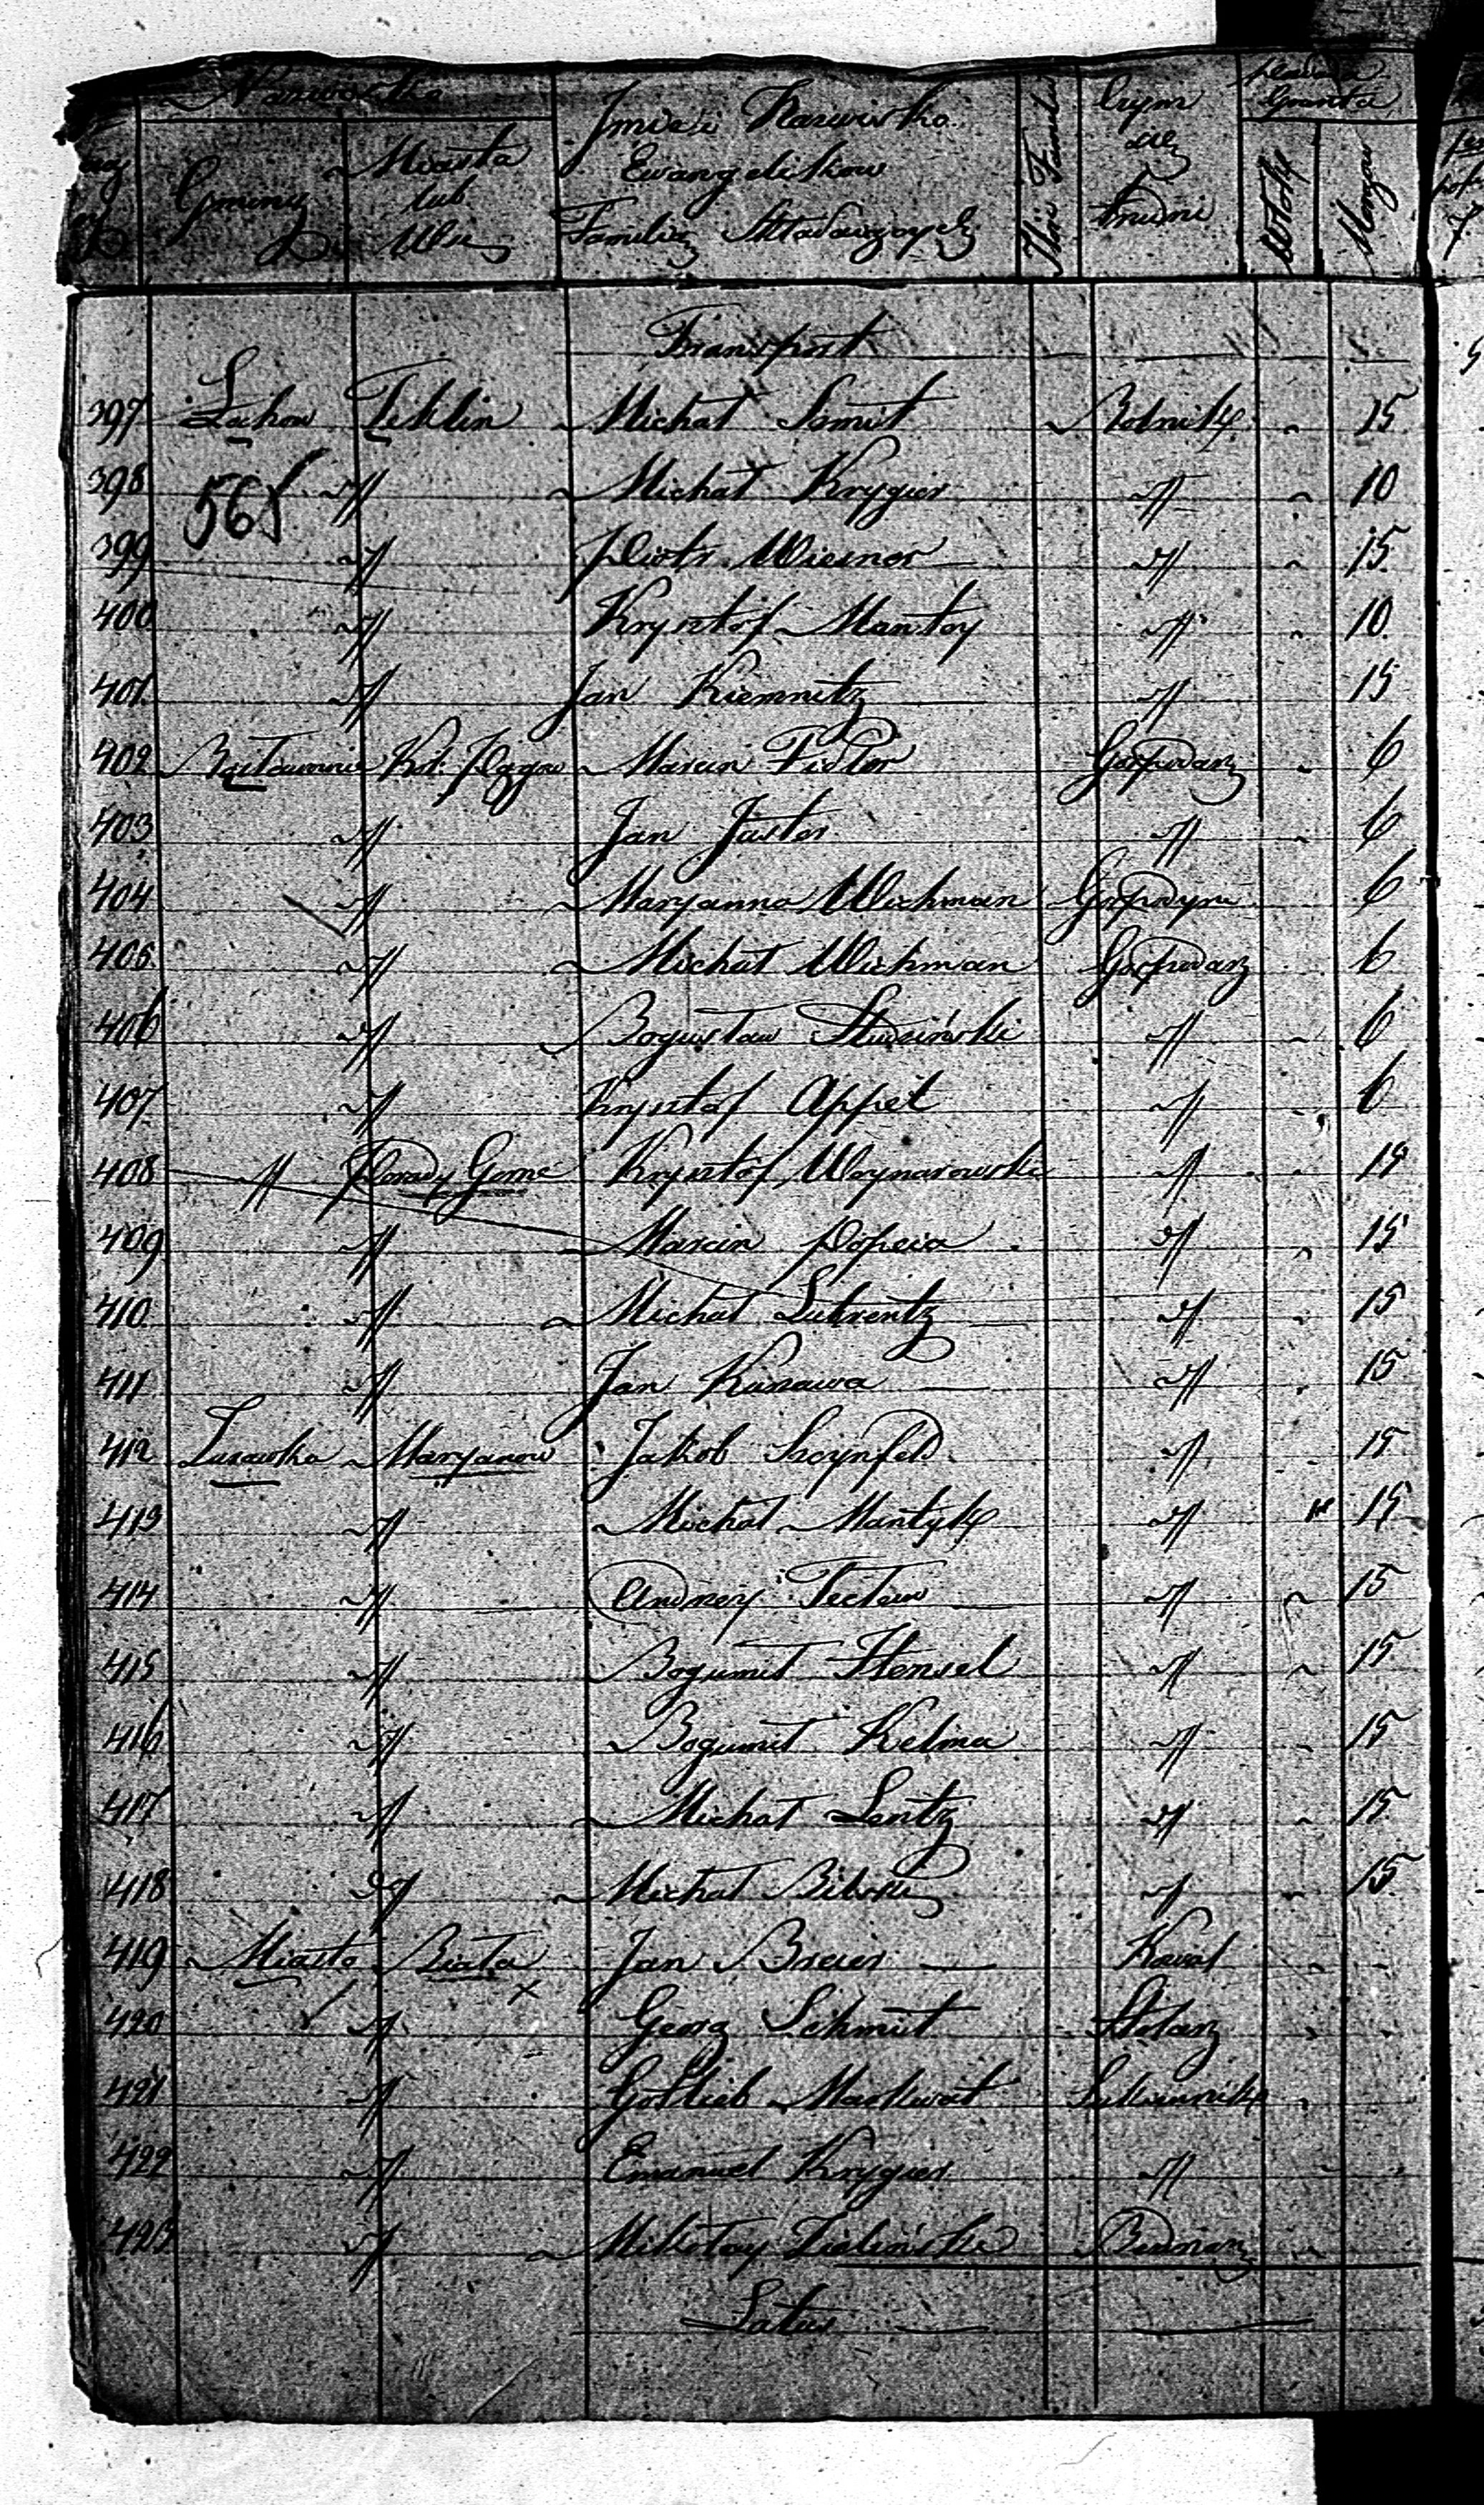 Nazwiska
Gminy
Miasta
lub
Wsi
Imie i Nazwisko
Ewangelikow
Familią Składaiących
Czym
się
trudni
posiada
Grunta
Włok
Morgow
Transport
397 Lochow Teklin Michał Szmit Rolnik 15
398 " Michał Krygier " 10
565
399 " Piotr Wiesner " 15
400 " Krysztof Mantey " 10
401 " Jan Kiemnitz " 15
402 Marcin Fidler Gospodarz 6
403 " Jan Juster " 6
404 " Maryanna Wichman Gospodyni 6
405 " Michał Wichman Gospodarz 6
406 " Bogusław " 6
407 " Krysztof Appel " 6
408 " Porady Gorne Krysztof Woynarowski " 15
409 " Marcin Popeia " 15
410 " Michał Luhrentz " 15
411 " Jan Kunawa " 15
412 Lusawka Maryanow Jakob Szeynfeld " 15
413 " Michał Mantyk " 15
414 " Andrzey " 15
415 " Bogumił Hensel " 15
416 " Bogumił Kelma " 15
417 " Michał Lentz " 15
418 " Michał " 15
419 Miasto Biała Jan Breier Kowal
420 " Georg Schmit Stolarz
421 " Gottlieb Markwat Sukiennik
422 " Emanuel Krygier "
423 " Mikołay Zieliński Bednarz
Latus